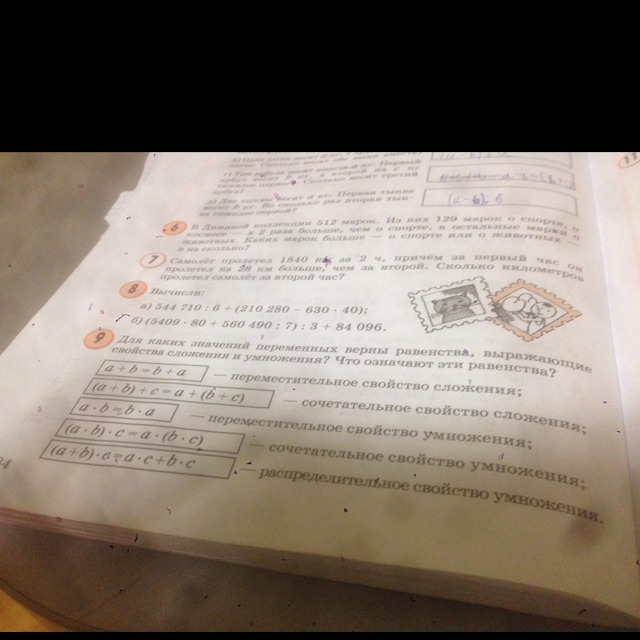 тяжелее первого. Сколько весит третий
арбуз?
весят d кг. Первая тыква
весит 8 кг. Во сколько раз вторая тык-
ва тяжелее первой?
(a - b) : b
11
6 В Диминой коллекции 512 марок. Из них 129 марок о спорте, о
космосе — в 2 раза больше, чем о спорте, а остальные марки о
животных. Каких марок больше — о спорте или о животных —
и на сколько?
7 Самолёт пролетел 1840 км за 2 ч, причём за первый час он
пролетел на 28 км больше, чем за второй. Сколько километров
пролетел самолёт за второй час?
8 Вычисли:
а) 544 710 : 6 + (210 280 – 630 · 40);
б) (5409 · 80 + 560 490 : 7) : 3 + 84 096.
9 Для каких значений переменных верны равенства, выражающие
свойства сложения и умножения? Что означают эти равенства?
a + b = b + a — переместительное свойство сложения;
(a + b) + c = a + (b + c) — сочетательное свойство сложения;
a · b = b · a — переместительное свойство умножения;
(a · b) · c = a · (b · c) — сочетательное свойство умножения;
(a + b) · c = a · c + b · c — распределительное свойство умножения.